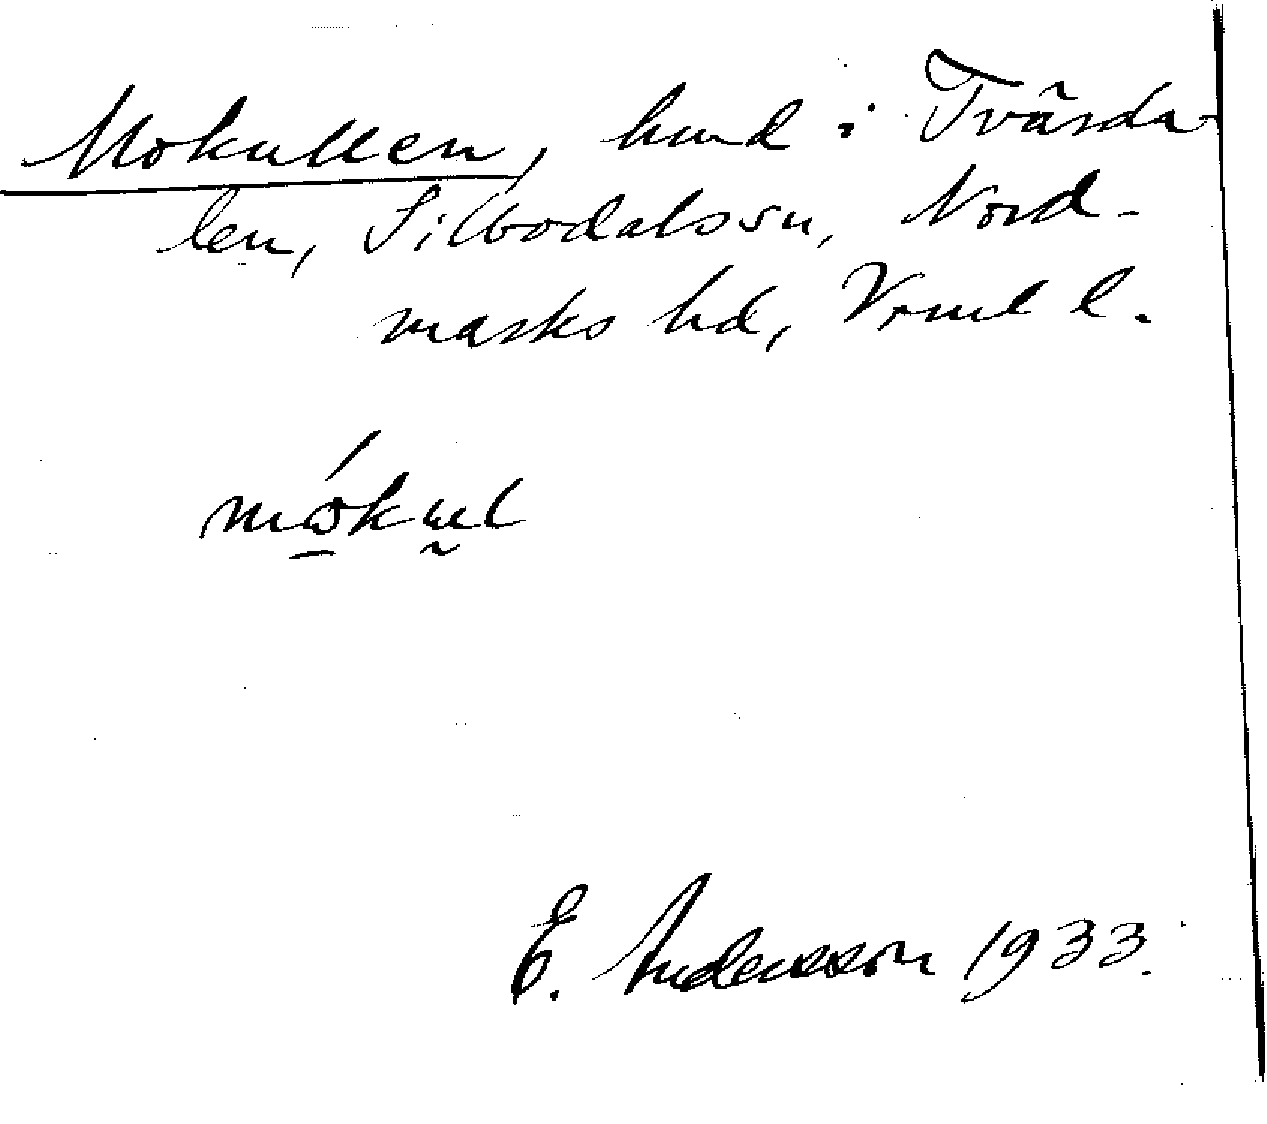 Mokullen, hmd i Tvärda
len, Silbodals sn, Nord-
marks hd, Vrml l.
mókul
E. Andersson 1933.